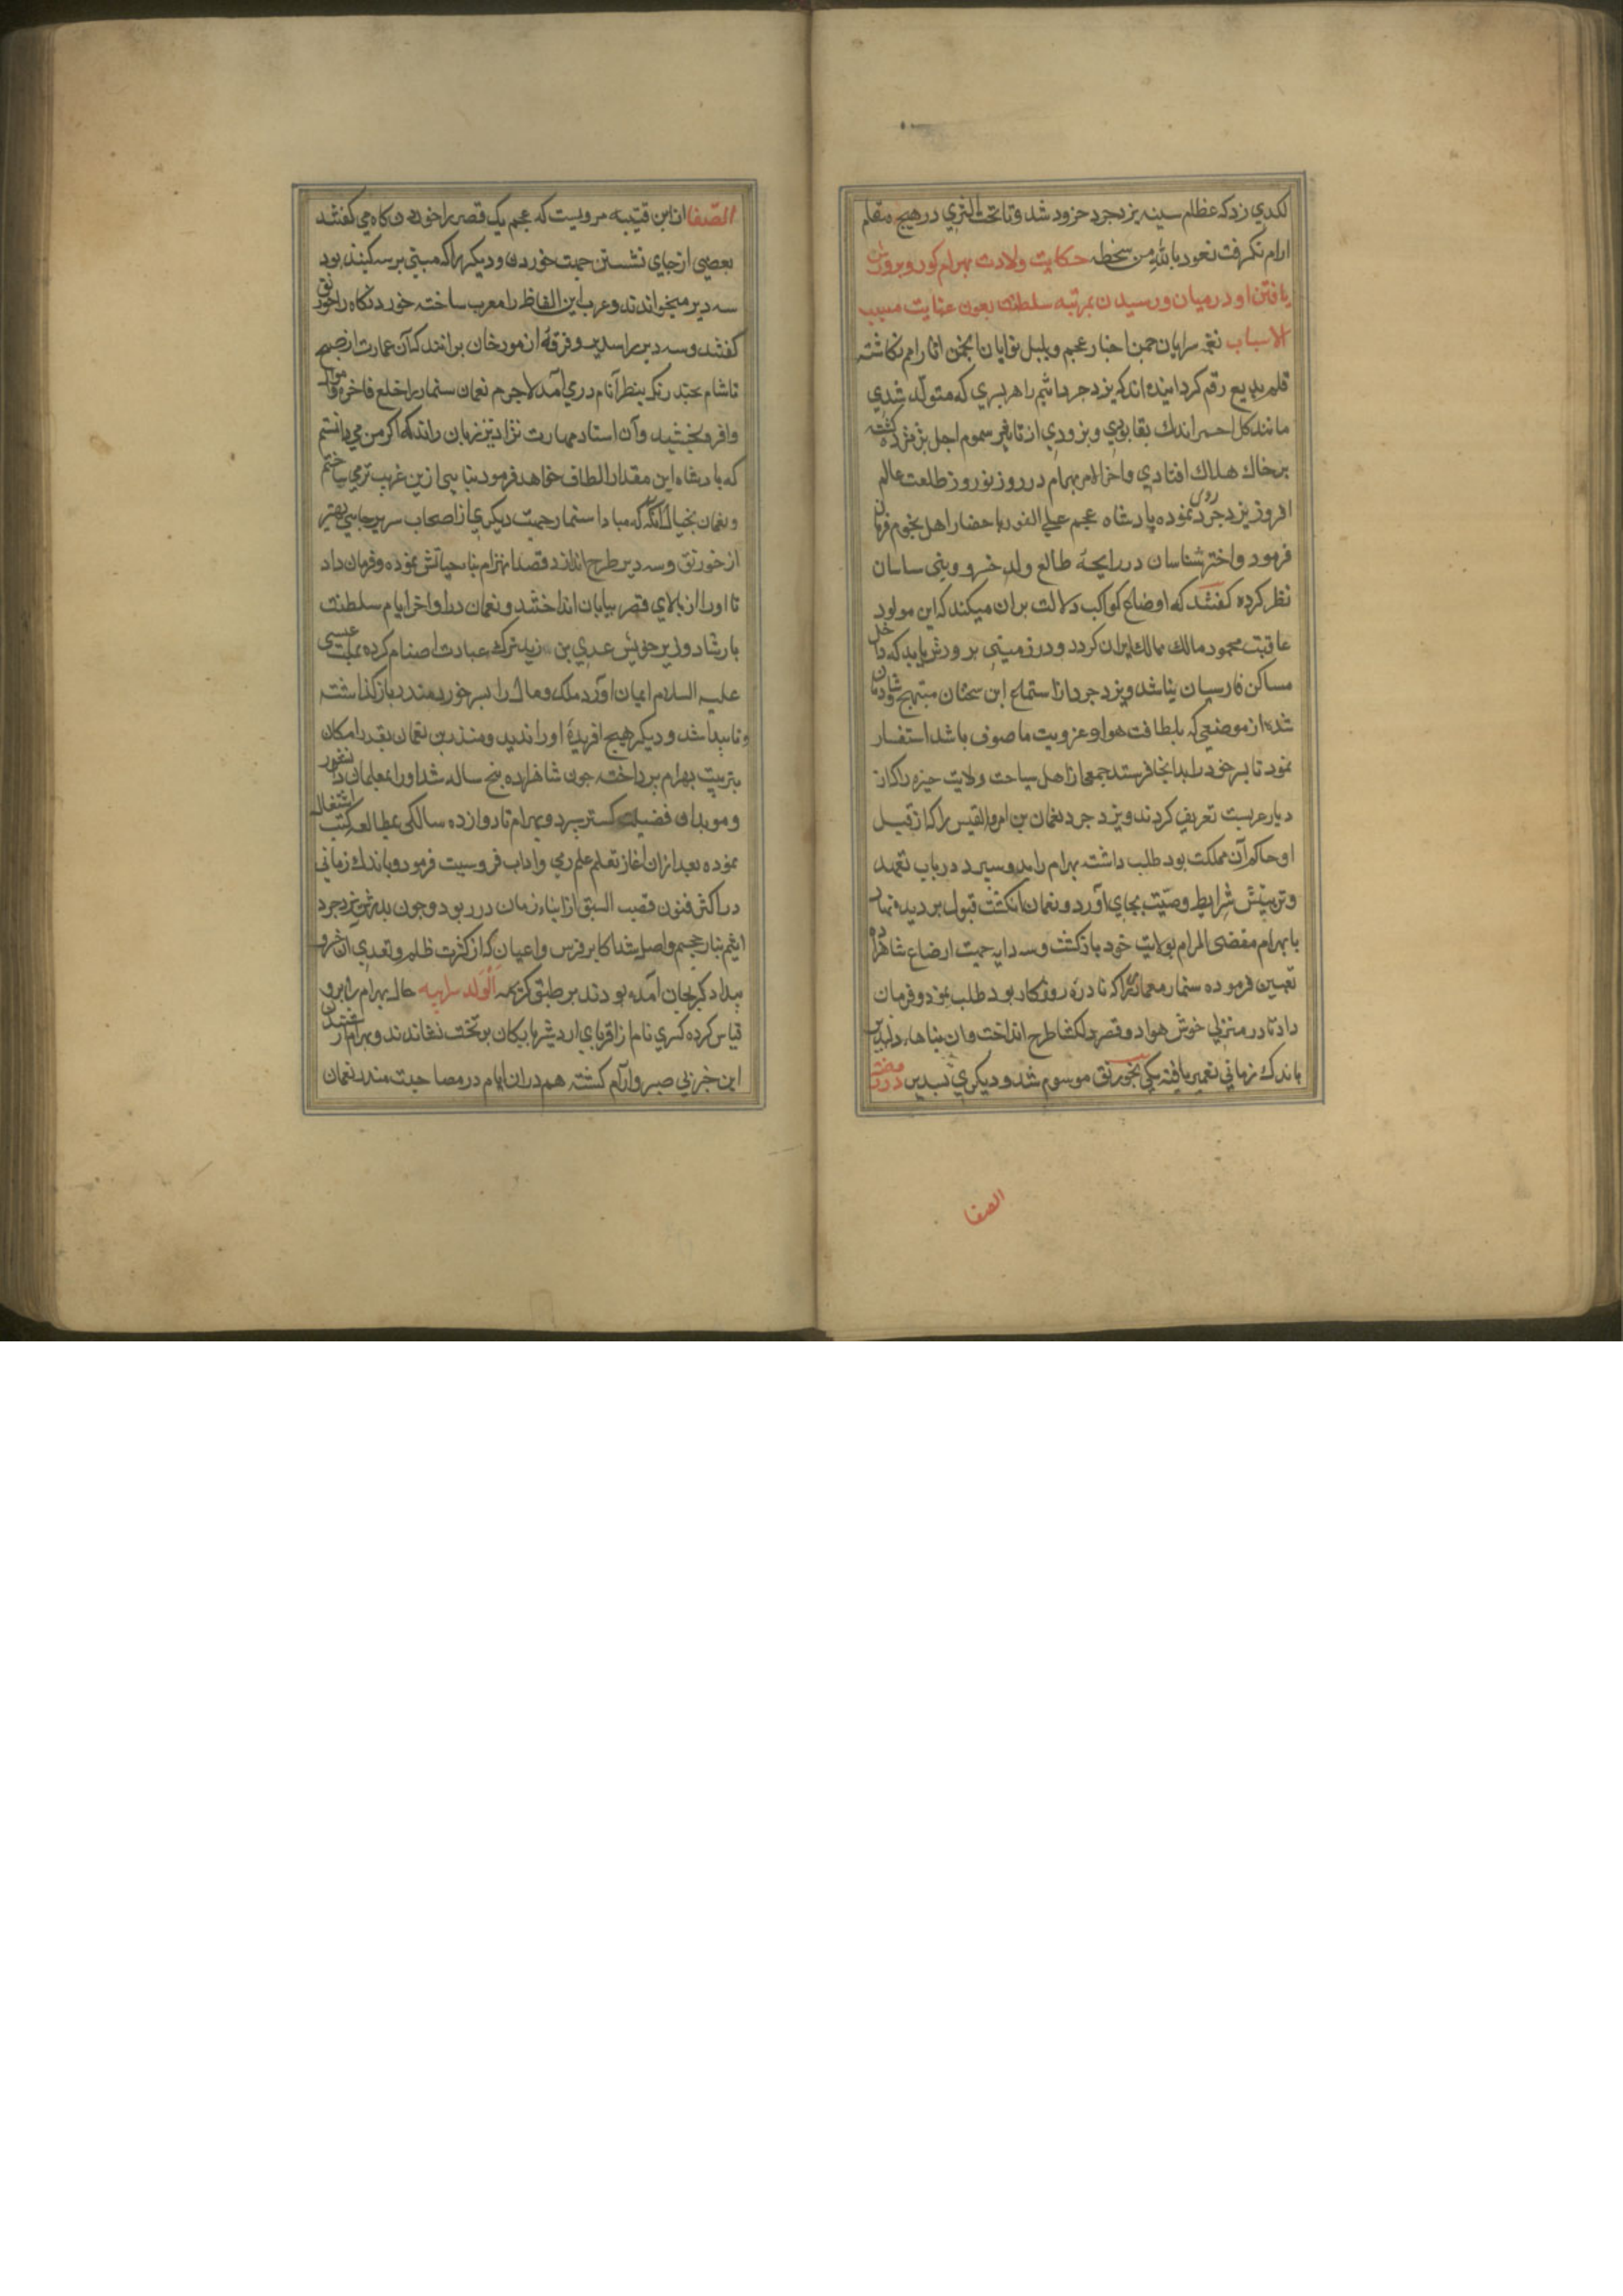 لکدي زد که عظام سینه یزدجرد خرد شد و تا تحت الثري در هیچ مقام
ارام نکرفت نعوذ بالله من سخطه حکایت ولادت بهرام کور و پرورش
یافتن او در میان و رسیدن بمرتبه سلطنت بعون عنایت مسبب
الاسباب نغمه سرایان چمن اخبار عجم و بلبل نوایان انجمن اثار ام نکاشته
قلم بدیع رقم کردانیده اند که یزدجرد اثیم را هر پسري که متولد شدي
مانند کل احمر اندك بقا بودي و بزودي از تاثیر سموم اجل پژمرده کشته
بر خاك هلاك افتادي و اخر الامر بهرام در روز نوروز طلعت عالم
افروز یزدجرد نموده پادشاه عجم علي الفور باحضار اهل نجوم فرمان
فرمود و اختر شناسان در رایجه طالع ولد خسرو و بني ساسان
نظر کرده کفتند که اوضاع کواکب دلالت بران میکند که این مولود
عاقبت محمود مالك ممالك ایران کردد و در زمیني پرورش یابد که داخل
مساکن فارسیان نباشد و یزدجرد از استماع این سخنان مبتهج و شادمان
شده از موضعي که بلطافت هوا و عذوبت ما موصوف باشد استفسار
نمود تا پسر خود را بدانجا فرستد جمعي از اهل سیاحت ولایت حیره را که از
دیار عربست تعریف کردند و یزدجرد نعمان بن امرو القیس را که از قبل
او حاکم آن مملکت بود طلب داشته بهرام را بدو سپرد در باب تعهد
و تربیتش شرایط وصیت بجاي آورد و نعمان انکشت قبول بر دیده نهاد
با بهرام مقضي المرام بولایت خود بازکشت و سه دایه جهت ارضاع شاهزاده
تعیین فرموده سنمار معمار را که نادره روزکار بود طلب نمود و فرمان
داد تا در منزلي خوش هوا دو قصر دلکشا طرح انداخت و ان بناها
باندك زماني تعمیر یافته یکي بخورنق موسوم شد و دیکري بسدیر در روضة
الصفا
الصفا از ابن قتیبه مرویست که عجم یک قصر را خوردن کاه مي کفتند
یعني از جاي نشستن جهت خوردن و دیکر را که مبني بر سه کنبد بود
سه دیر میخواندند و عرب این الفاظ را معرب ساخته خوردنکاه را خورنق
کفتند و سه دیر را سدیر و فرقه از مورخان برانند که آن عمارت از صبح
تا شام بچند رنك بنظر آنام در مي آمد لاجرم نعمان سنمار را خلع فاخره و اموال
وافر بخشید و آن استاد مهارت نژاد تیز زبان راند که اکر من مي دانستم
که پادشاه این مقدار الطاف خواهد فرمود بنایي ازین غریب تر مي ساختم
و نعمان بخیال آنکه که مبادا سنمار جهت دیکري از اصحاب سریر جایي بهتر
از خورنق و سه دیر طرح اندازد قصد انهزام بناء حیاتش نموده و فرمان داد
تا او را از بالاي قصر بیابان انداختند و نعمان در اواخر ایام سلطنت
بارشاد وزیر خویش عدي بن زید ترك عبادت اصنام کرده بملت عیسي
علیه السلام ایمان آورد و ملك و مال را به پسر خورد منذر بازکذاشته
و ناپیدا شد و دیکر هیچ افریده او را ندید و منذر بن نعمان بقدر امکان
بتربیت بهرام پرداخته چون شاهزاده پنج ساله شد او را بمعلمان دانشور
و موبدان فضیلت کستر سپرد و بهرام تا دوازده سالکي بمطالعه کتب اشتغال
نموده بعد ازان اغاز تعلم علم رمي و اداب فروسیت فرمود و باندك زماني
در اکثر فنون قصب السبق از ابناء زمان در ربود و چون پدرش یزدجرد
اثیم بنار جحیم واصل شد اکابر فرس و اعیان که از کثرت ظلم و تعدي آن خسرو
بیداد کر بجان آمده بودند بر طبق کریمه الولد سر ابیه حال بهرام را برو
قیاس کرده کسري نام از اقرباي اردشیر بابکان بر تخت نشاندند و بهرام از شنیدن
این خبر بي صبر و آرام کشته هم دران ایام در مصاحبت منذر نعمان